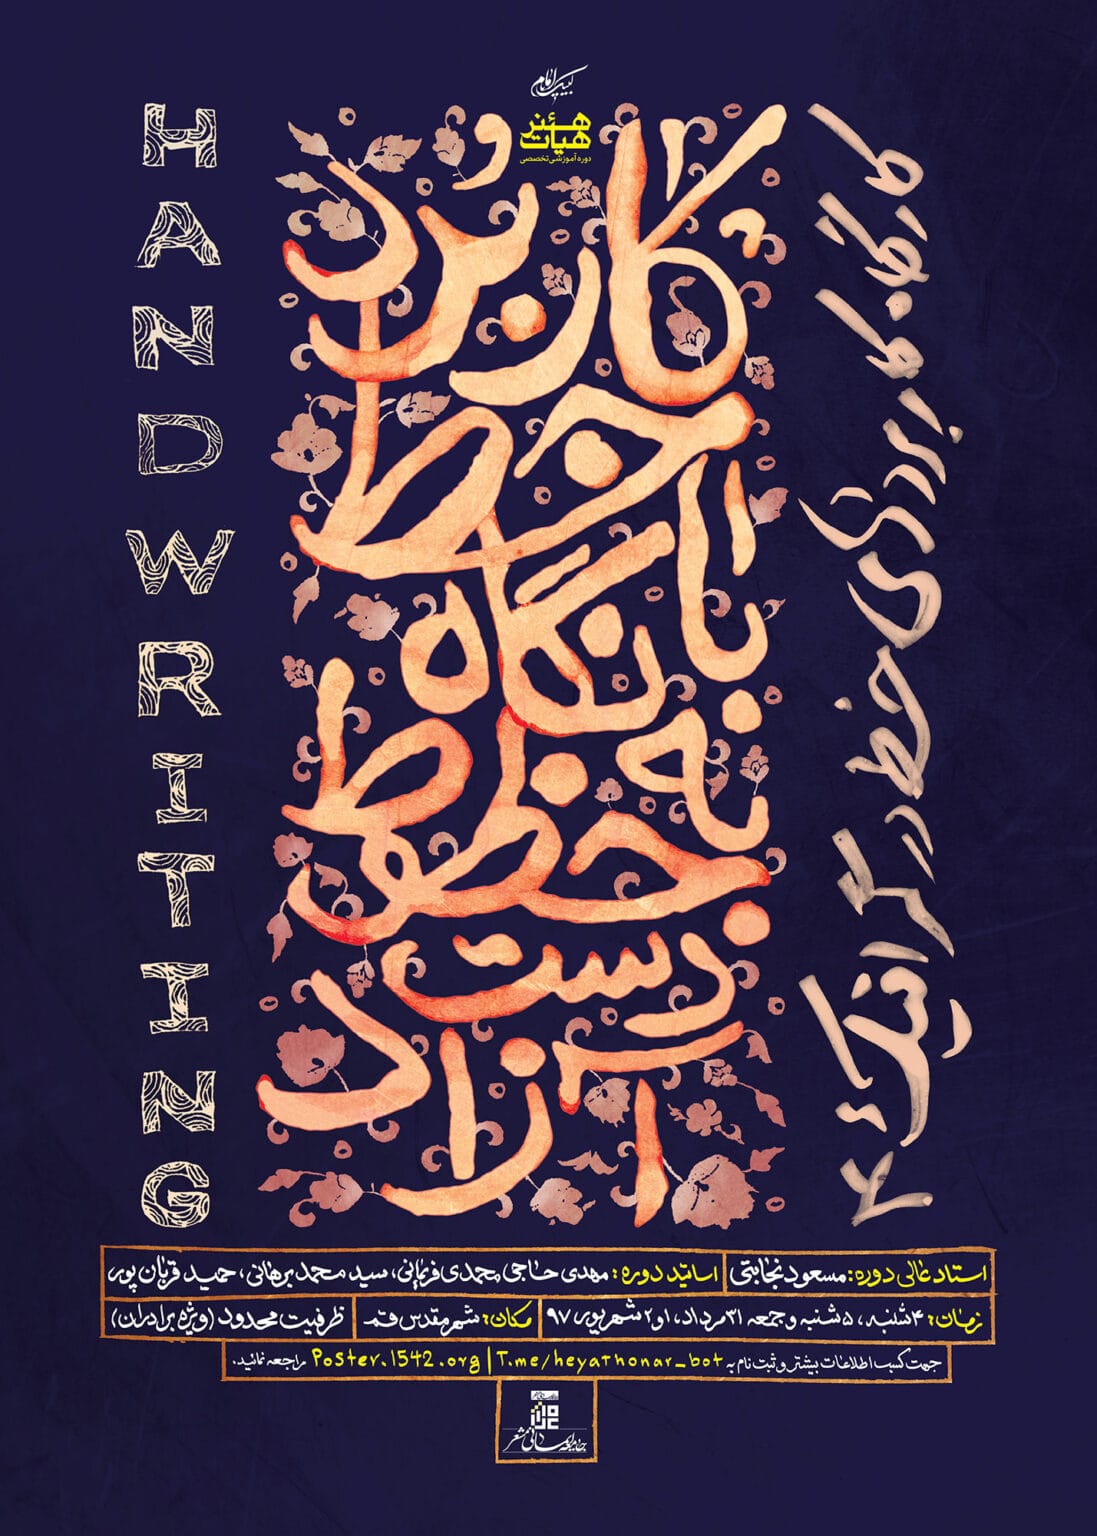 لبیک یا امام
هنر
هیات
دوره آموزشی تخصصی
HANDWRITING
کاربرد
و
خط
با
نگاه
به
خط
خطوط
دست
آزاد
کارگاه کاربردی خط در گرافیک ۴
استاد عالی دوره: مسعود نجابتی
اساتید دوره: مهدی حاجی محمدی فریمانی، سید محمد برهانی، حمید قربان پور
زمان: ۴شنبه، ۵شنبه و جمعه ۳۱ مرداد، ۱و۲ شهریور ۹۷
مکان: شهر مقدس قم
ظرفیت محدود (ویژه برادران)
جهت کسب اطلاعات بیشتر و ثبت نام به Poster.1542.org | T.me/heyathonar_bot مراجعه نمائید.
جامعه ایمانی مشعر